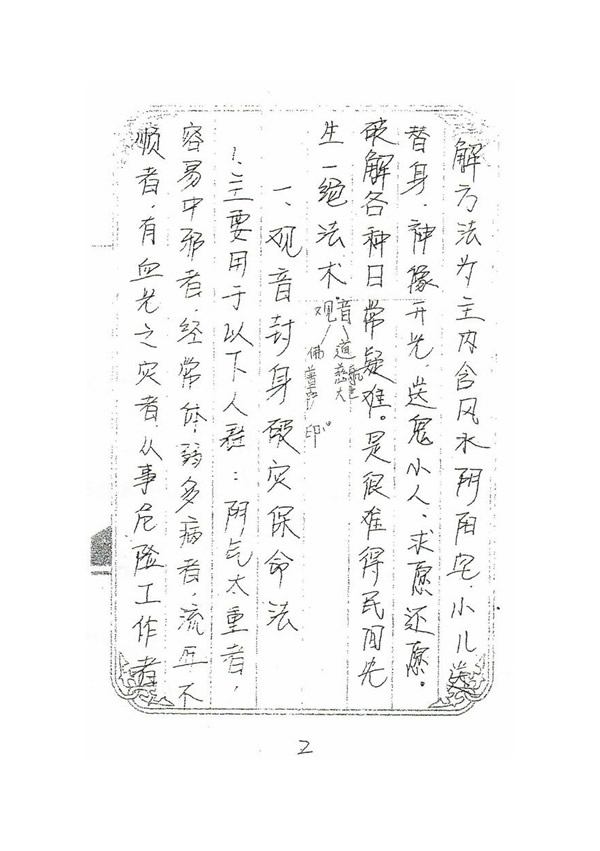 解方法为主内含风水阴阳宅、小儿送
替身、神像开光、送鬼小人、求愿还愿。
破解各种日常疑难。是很难得民间先
生一绝法术
一、观音封身破灾保命法
1、主要用于以下人群：阴气太重者，
容易中邪者，经常体弱多病者，流年不
顺者，有血光之灾者，从事危险工作者
2